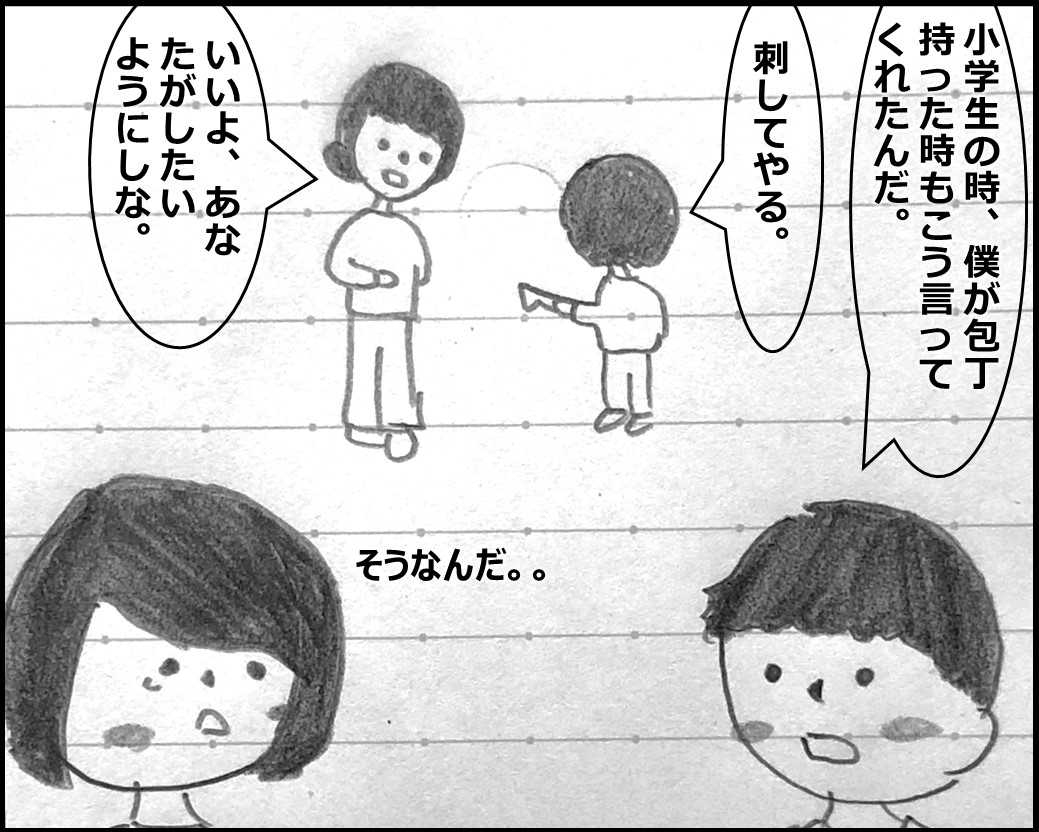 小学生の時、僕が包丁
持った時もこう言って
くれたんだ。
刺してやる。
いいよ、あな
たがしたい
ようにしな。
そうなんだ。。